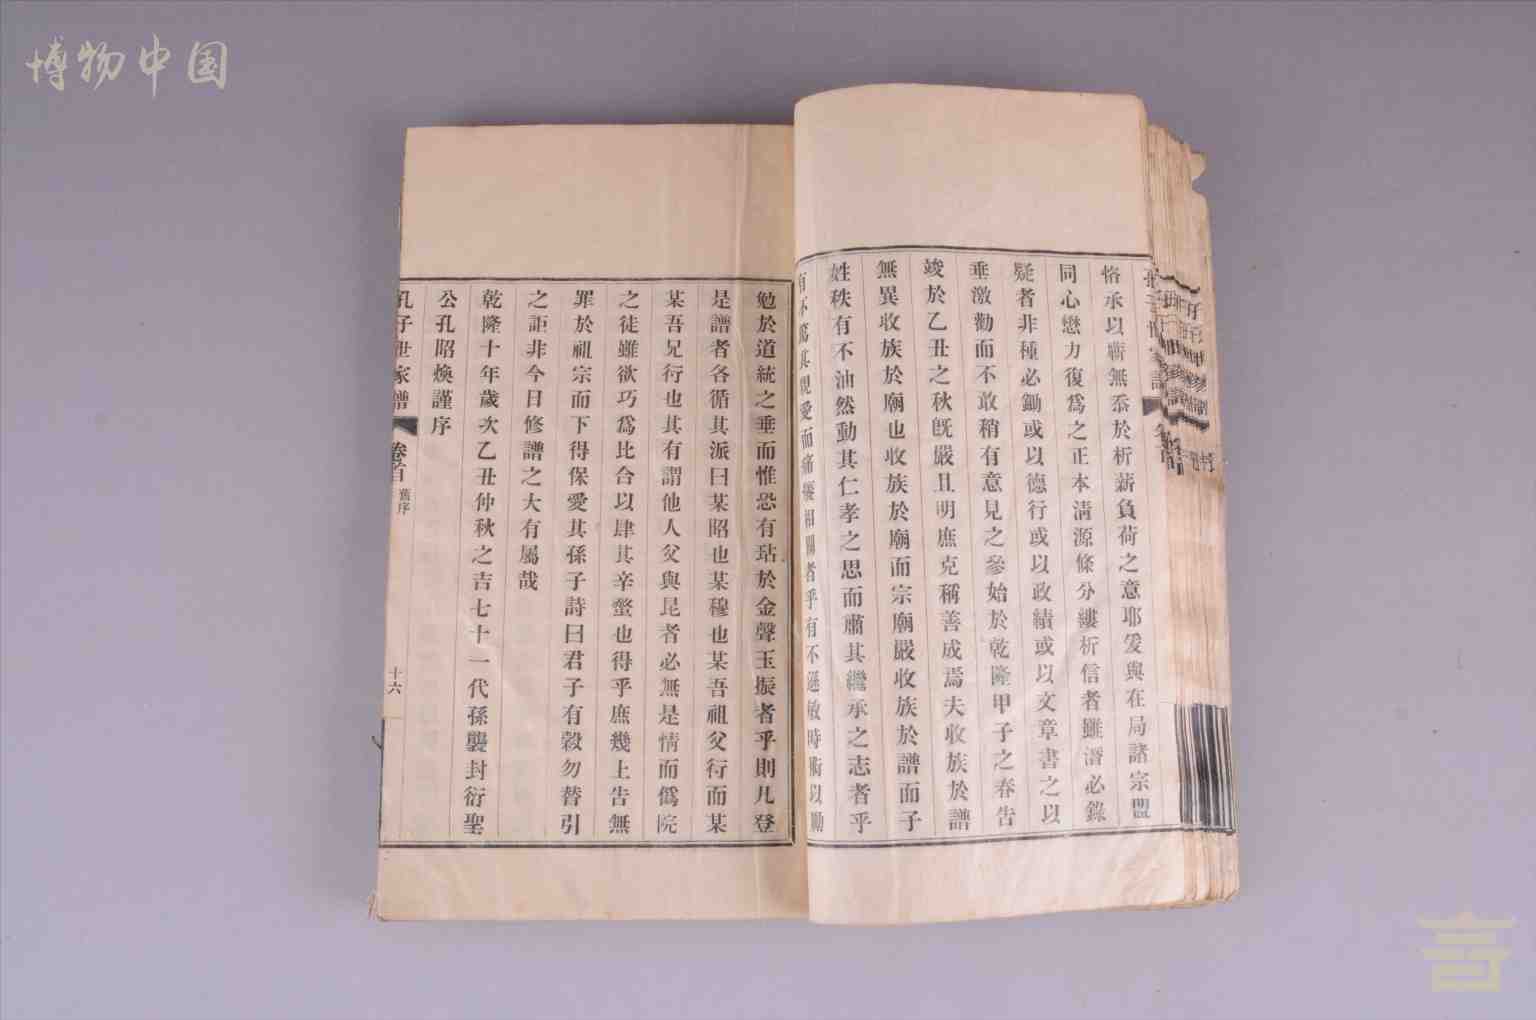 博物中国
恪承以嘶無忝於析薪負荷之意耶爰與在局諸宗盟
同心懋力復爲之正本清源條分縷析信者雖潛必錄
疑者非種必鋤或以德行或以政績或以文章書之以
垂激勸而不敢稍有意見之參始於乾隆甲子之春告
竣於乙丑之秋旣嚴且明庶克稱善成焉夫收族於譜
無異收族於廟也收族於廟而宗廟嚴收族於譜而子
姓秩有不油然動其仁孝之思而肅其繼承之志者乎
有不篤其親愛而痛癢相關者乎有不遜敏時術以勖
勉於道統之垂而惟恐有玷於金聲玉振者乎則凡登
是譜者各循其派曰某昭也某穆也某吾祖父行而某
某吾兄行也其有謂他人父與昆者必無是情而僞院
之徒雖欲巧爲比合以肆其辛螫也得乎庶幾上告無
罪於祖宗而下得保愛其孫子詩曰君子有穀勿替引
之詎非今日修譜之大有屬哉
乾隆十年歲次乙丑仲秋之吉七十一代孫襲封衍聖
公孔昭煥謹序
孔子世家譜 卷首 舊序 十六